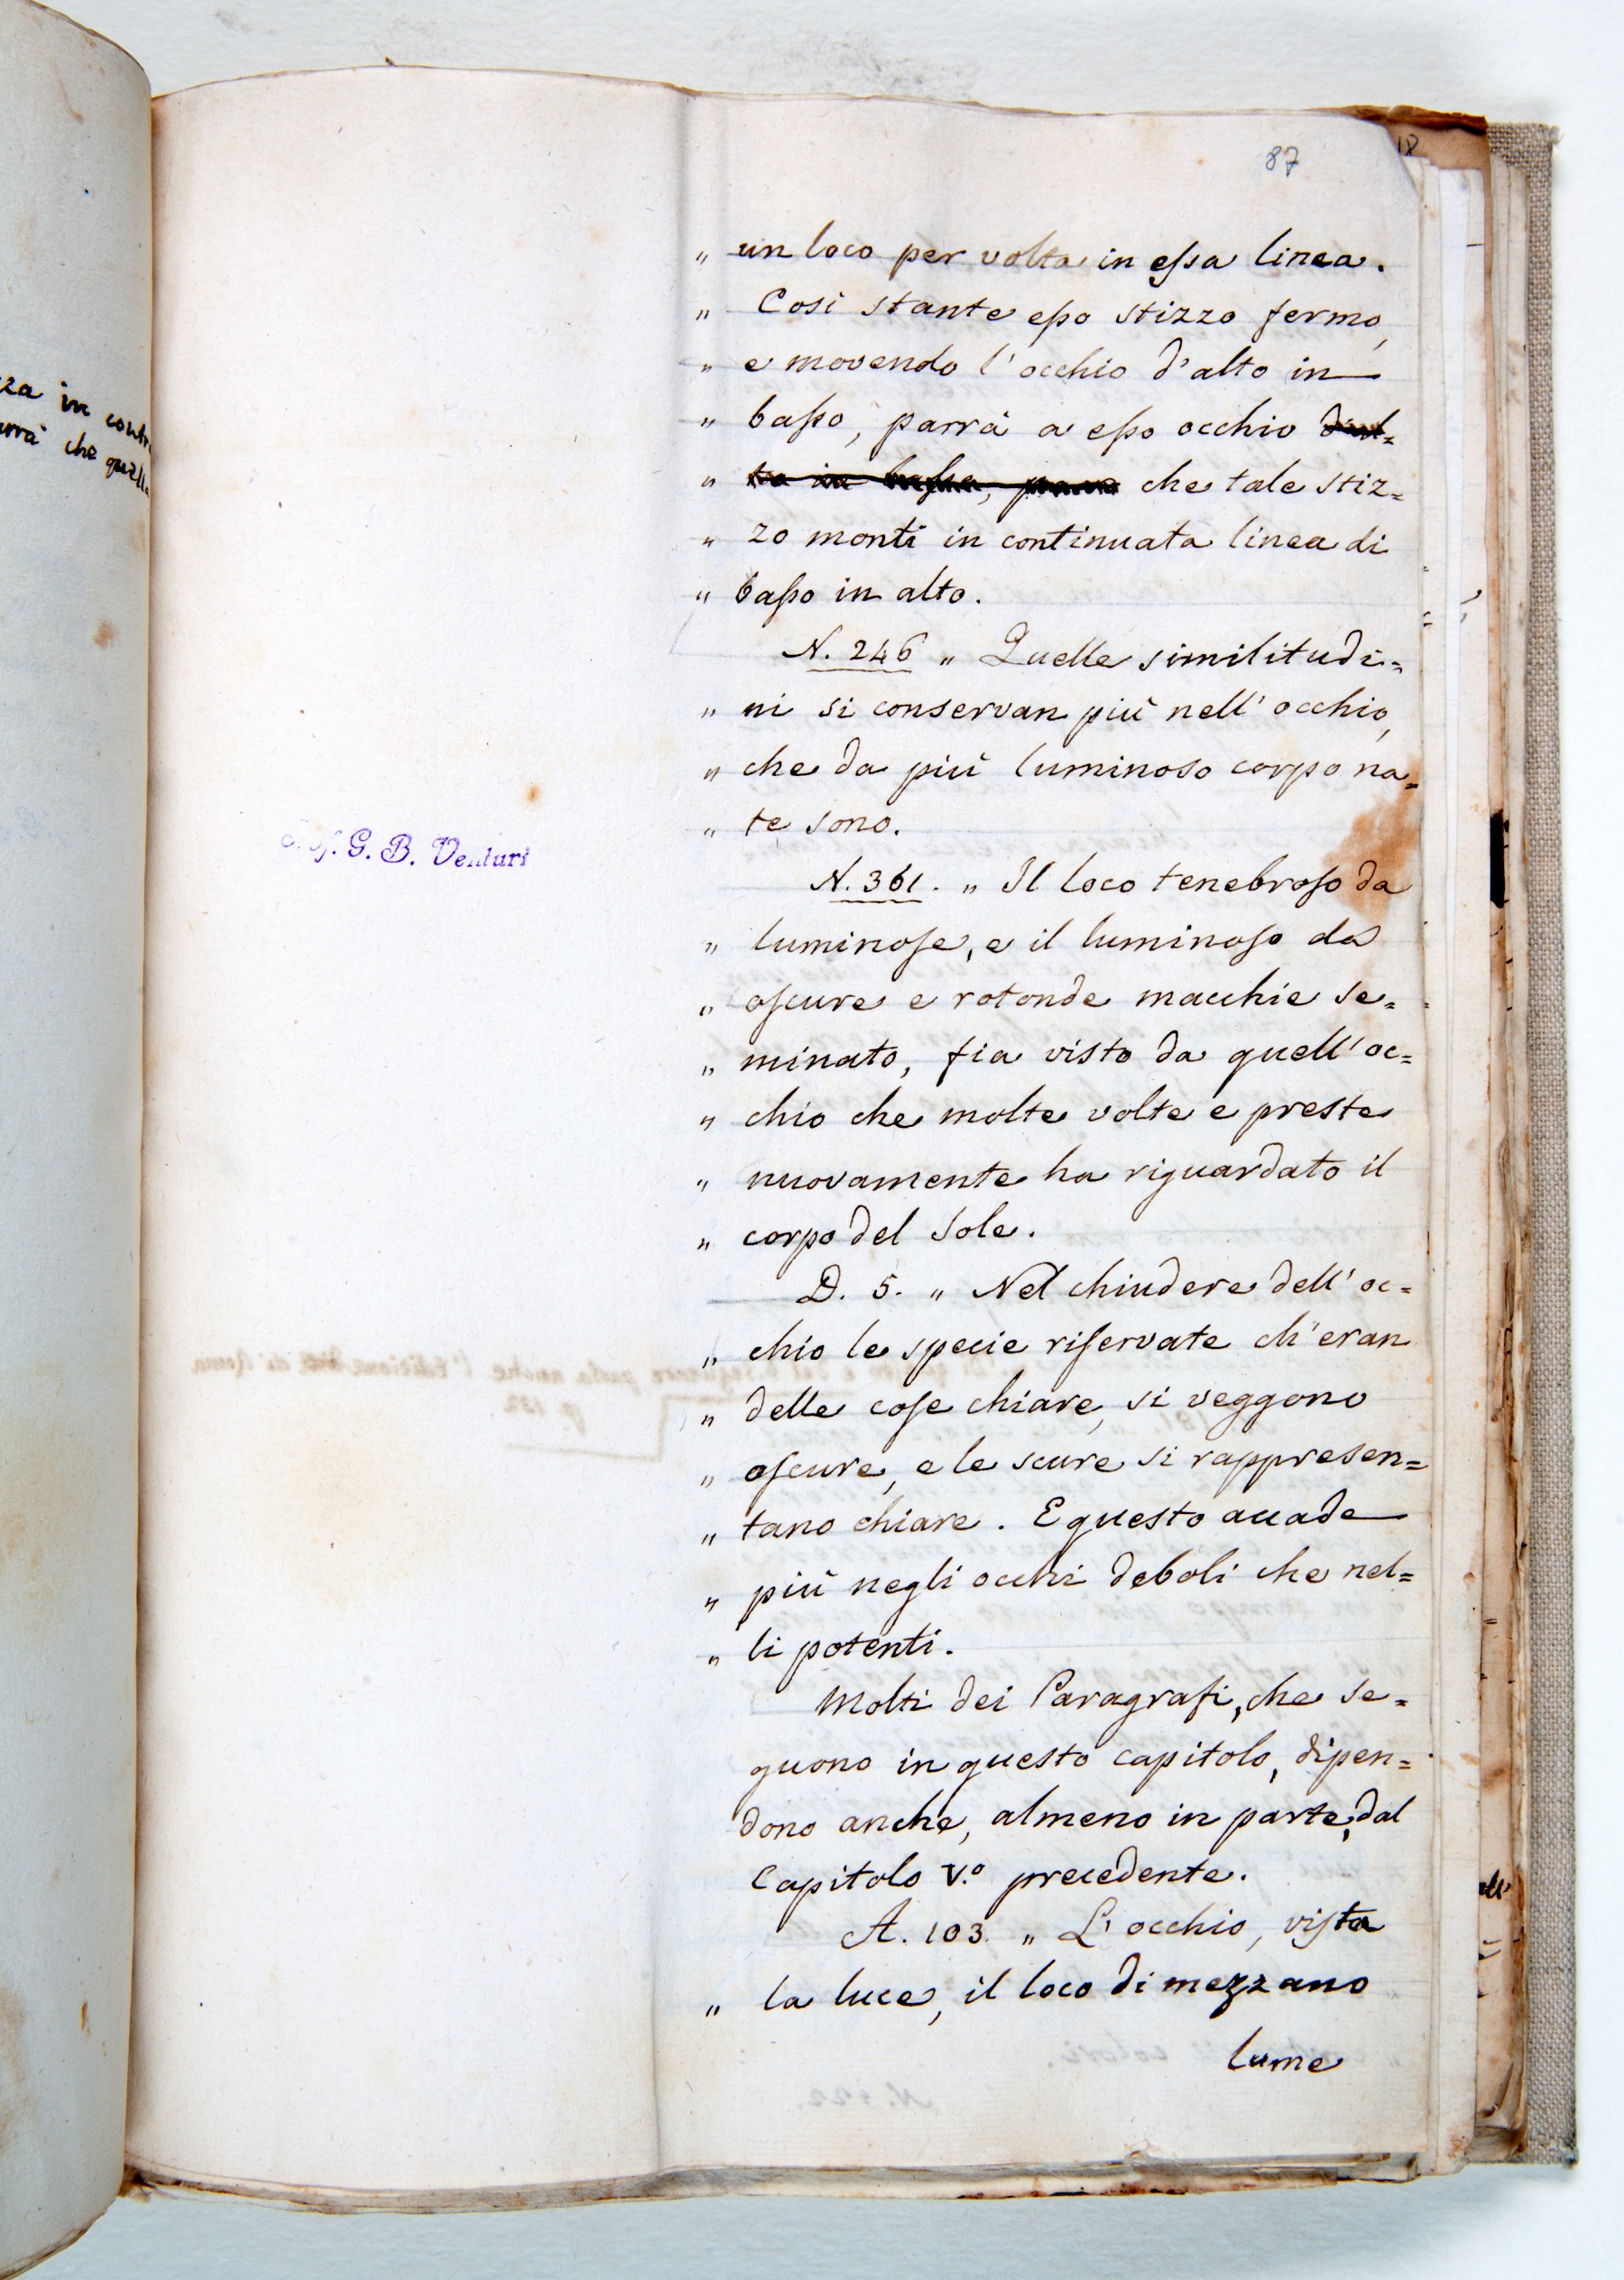 87
18
„ un loco per volta in eſsa linea.
„ Cosi stante eſso stizzo fermo,
„ e movendo l'occhio d'alto in
„ baſso, parrà a eſso occhio d'al=
„ to in baſso, parrà che tale stiz=
„ zo monti in continuata linea di
„ baſso in alto.
N. 246 „ Quelle similitudi=
„ ni si conservan più nell'occhio,
„ che da più luminoso corpo na=
„ te sono.
N. 361. „ Il loco tenebroſo da
„ luminoſe, e il luminoſo da
„ oſcure e rotonde macchie se=
„ minato, fia visto da quell'oc=
„ chio che molte volte e preste
„ nuovamente ha riguardato il
„ corpo del Sole.
D. 5. „ Nel chiudere dell'oc=
„ chio le specie riſervate ch'eran
„ delle coſe chiare, si veggono
„ oſcure, e le scure si rappresen=
„ tano chiare. E questo accade
„ più negli occhi deboli che nel=
„ li potenti.
Molti dei Paragrafi, che se=
guono in questo capitolo, dipen=
dono anche, almeno in parte, dal
Capitolo V.º precedente.
A. 103. „ L'occhio, viſta
„ la luce, il loco di mezzano
lume
Prof. G. B. Venturi
zza in cont
arrà che quell